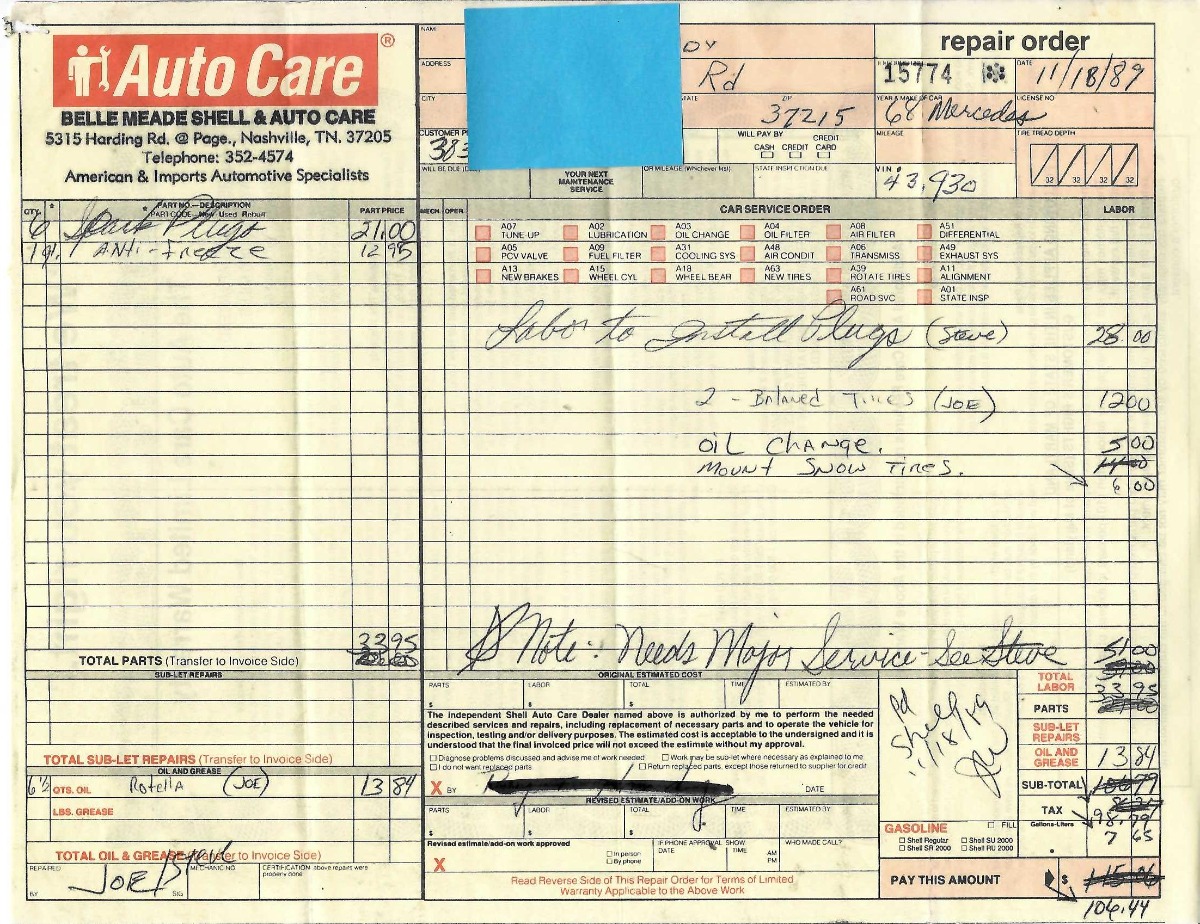 Auto Care ®
BELLE MEADE SHELL & AUTO CARE
5315 Harding Rd. @ Page., Nashville, TN. 37205
Telephone: 352-4574
American & Imports Automotive Specialists
repair order
NAME DY
ADDRESS Rd
15774
DATE 11/18/89
CITY STATE ZIP 37215
YEAR & MAKE OF CAR 68 Mercedes
LICENSE NO
CUSTOMER P 383
WILL PAY BY CASH CREDIT CREDIT CARD
MILEAGE
TIRE TREAD DEPTH
32 32 32 32
WILL BE DUE (DA
YOUR NEXT MAINTENANCE SERVICE
OR MILEAGE (Whichever first)
STATE INSPECTION DUE
VIN # 43,930
QTY. * PART NO.—DESCRIPTION PART PRICE
* PART CODE: New Used Rebuilt
6 Spark Plugs 21.00
1 gl. ANti-freeze 12 95
MECH. OPER. CAR SERVICE ORDER LABOR
A07 TUNE-UP A02 LUBRICATION A03 OIL CHANGE A04 OIL FILTER A08 AIR FILTER A51 DIFFERENTIAL
A05 PCV VALVE A09 FUEL FILTER A31 COOLING SYS A48 AIR CONDIT A06 TRANSMISS A49 EXHAUST SYS
A13 NEW BRAKES A15 WHEEL CYL A18 WHEEL BEAR A63 NEW TIRES A39 ROTATE TIRES A11 ALIGNMENT
A61 ROAD SVC A01 STATE INSP
Labor to Install Plugs (Steve) 28 00
2 - Balaned Tires (JOE) 12 00
OIL CHANGE. 5 00
MOUNT SNOW TIRES.
6 00
33 95
TOTAL PARTS (Transfer to Invoice Side)
Note: Needs Major Service - See Steve 51 00
SUB-LET REPAIRS
TOTAL SUB-LET REPAIRS (Transfer to Invoice Side)
OIL AND GREASE
6½ QTS. OIL Rotella (JOE) 13 84
LBS. GREASE
TOTAL OIL & GREASE (Transfer to Invoice Side)
REPAIRED BY JOE SIG.
MECHANIC NO.
CERTIFICATION above repairs were properly done.
ORIGINAL ESTIMATED COST
PARTS LABOR TOTAL TIME ESTIMATED BY
$ $ $
The independent Shell Auto Care Dealer named above is authorized by me to perform the needed
described services and repairs, including replacement of necessary parts and to operate the vehicle for
inspection, testing and/or delivery purposes. The estimated cost is acceptable to the undersigned and it is
understood that the final invoiced price will not exceed the estimate without my approval.
Diagnose problems discussed and advise me of work needed Work may be sub-let where necessary as explained to me
I do not want replaced parts Return replaced parts, except those returned to supplier for credit
X BY DATE
REVISED ESTIMATE/ADD-ON WORK
PARTS LABOR TOTAL TIME ESTIMATED BY
$ $ $
Revised estimate/add-on work approved
In person
By phone
IF PHONE APPROVAL, SHOW
DATE TIME AM PM
WHO MADE CALL?
X
Read Reverse Side of This Repair Order for Terms of Limited
Warranty Applicable to the Above Work
Pd
Shell
11/18/89
GASOLINE FILL Gallons-Liters
Shell Regular Shell SU 2000
Shell SR 2000 Shell RU 2000
TOTAL LABOR
PARTS 33 95
SUB-LET REPAIRS
OIL AND GREASE 13 84
SUB-TOTAL
98.79
TAX 7 65
PAY THIS AMOUNT $
106.44